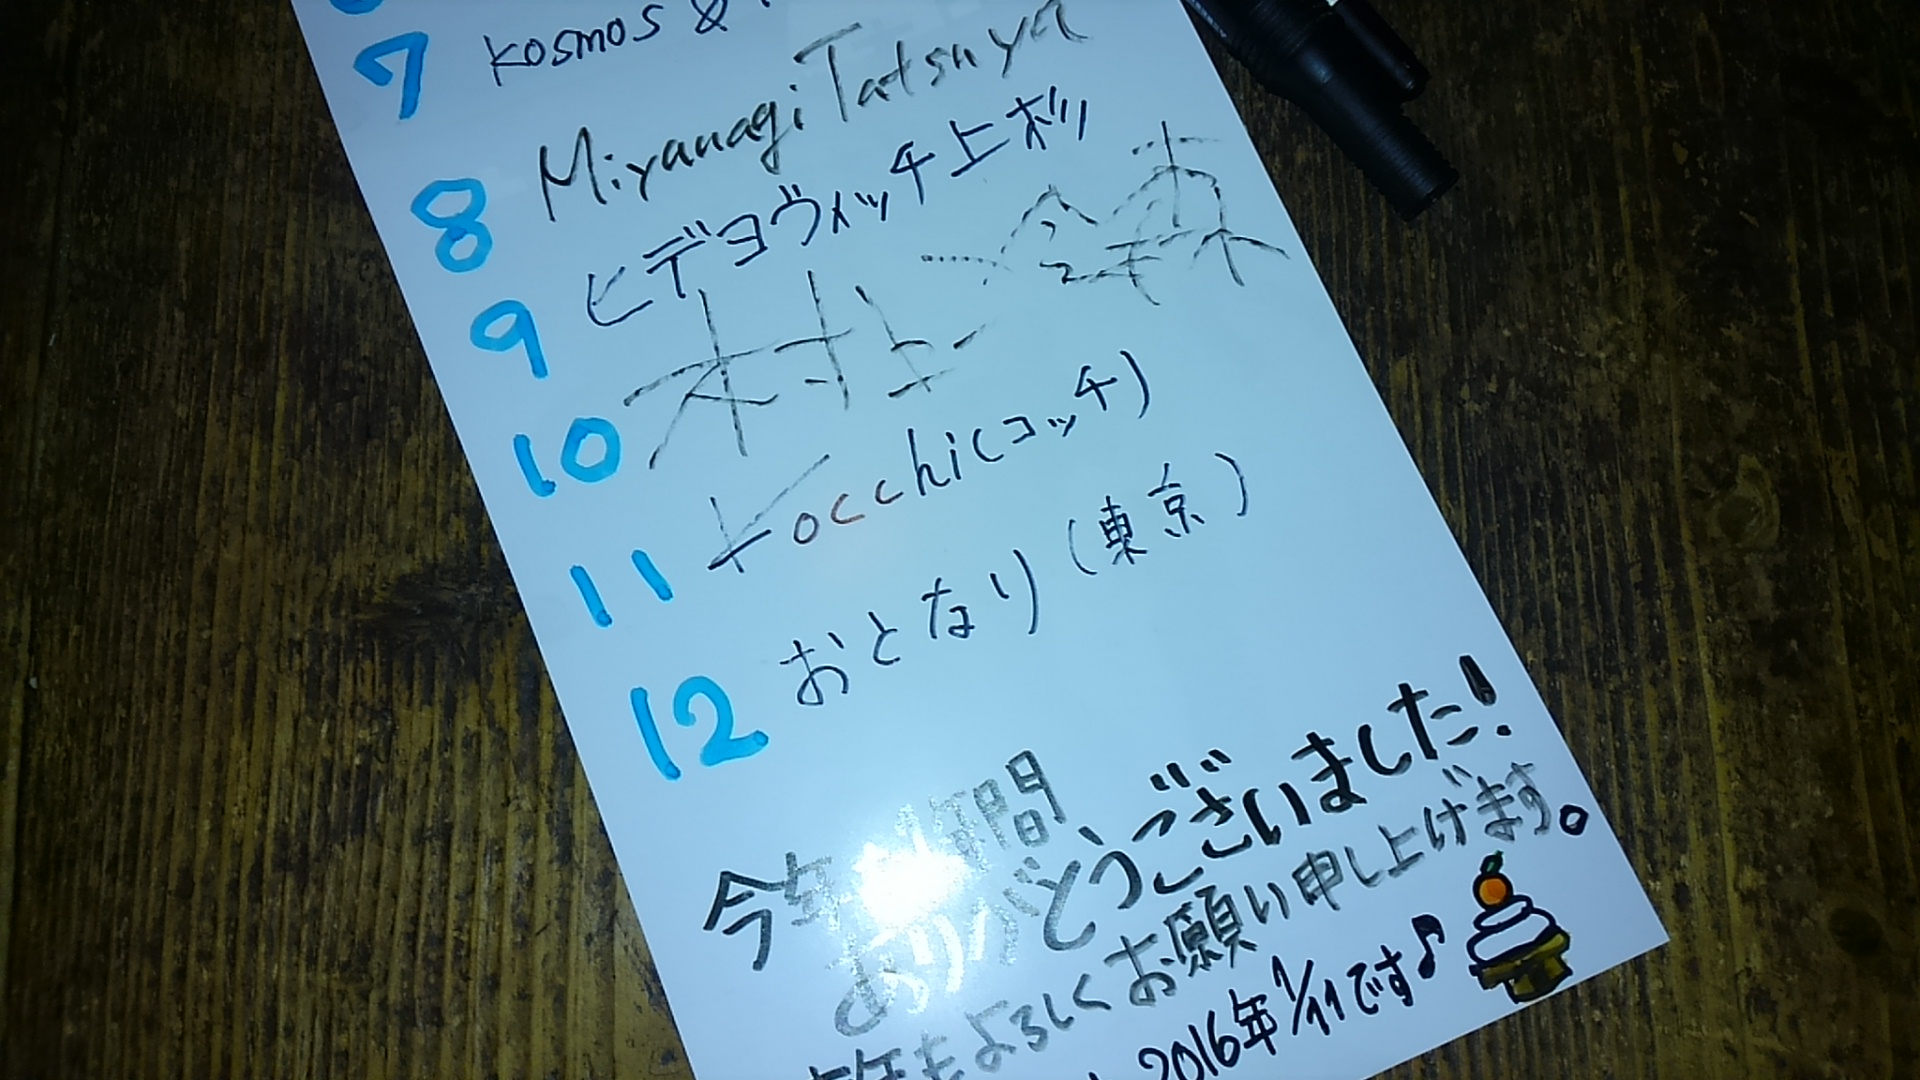 7 Kosmos &
8 Miyanagi Tatsuya
9 ヒデヨヴィッチ上杉
10 村上
11 Kocchi(コッチ)
12 おとなり(東京)
今年 年間
ありがとうございました!
年もよろしくお願い申し上げます。
2016年1/11です♪